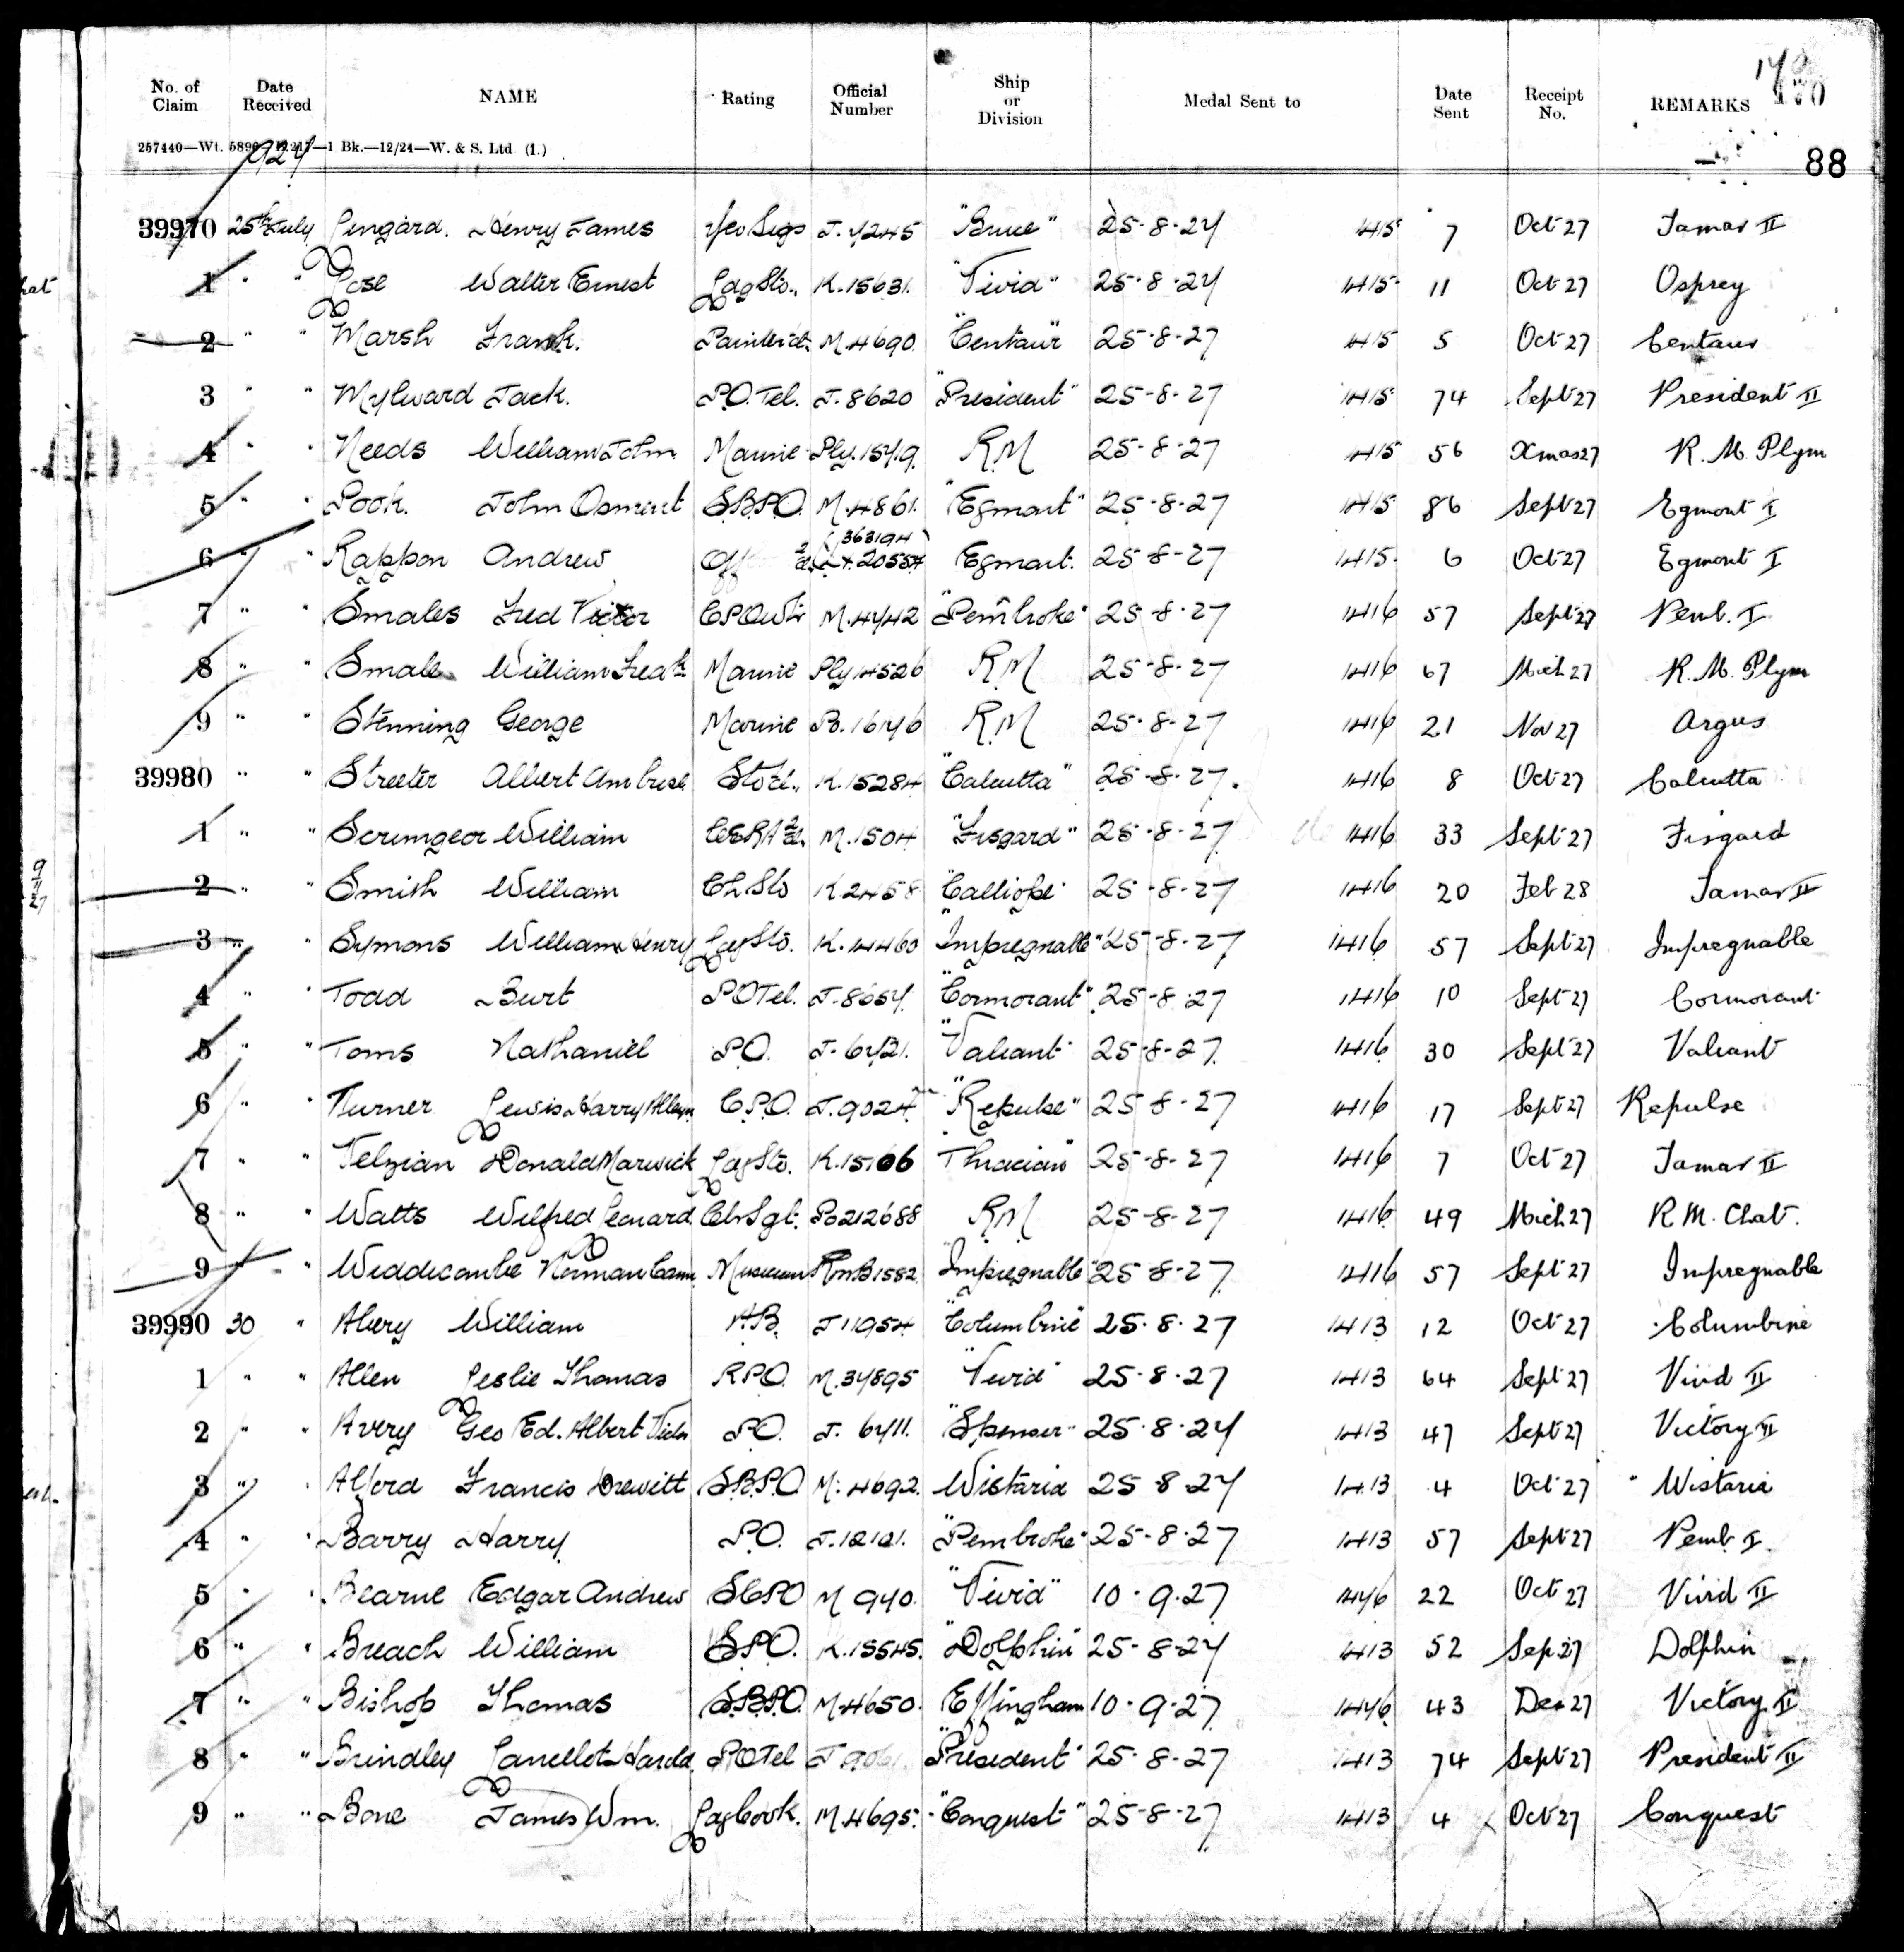 No. of Claim Date Received NAME Rating Official Number Ship or Division Medal Sent to Date Sent Receipt No. REMARKS
257440—Wt. 1 Bk.—12/24—W. & S. Ltd (1.)
88
39970 25th July Pingard. Henry James Yeo Sigs J. 7245 "Bruce" 25-8-27 1415 7 Oct 27 Tamar II
1 " " Walter Ernest Ldg Sto. K. 15631. "Vivid" 25-8-27 1415 11 Oct 27 Osprey
2 " " Marsh Frank. M. 4690 "Centaur" 25-8-27 1415 5 Oct 27 Centaur
3 " " Mylward Jack. P.O. Tel. J. 8620 "President" 25-8-27 1415 74 Sept 27 President II
4 " " Needs William John Marine Ply. RM 25-8-27 1415 56 Xmas 27 R. M. Plym
5 " " Pook. John Osment S.B.P.O. M. 4861. "Egmont" 25-8-27 1415 86 Sept 27 Egmont I
6 " " Rappon Andrew 363194 Egmont. 25-8-27 1415. 6 Oct 27 Egmont I
7 " " Smales Fred Victor M. 4742 "Pembroke" 25-8-27 1416 57 Sept 27 Pemb. I
8 " " Smale William Fredk Marine Ply 14526 RM 25-8-27 1416 67 Mich 27 R. M. Plym
9 " " Stenning George Marine Po. 16746 R.M 25-8-27 1416 21 Nov 27 Argus
39980 " " Streeter Albert Ambrose K. 15284 "Calcutta" 25-8-27. 1416 8 Oct 27 Calcutta
1 " " Scrumgeor William CERA 2cl. M. 1504 "Fisgard" 25-8-27 1416 33 Sept 27 Fisgard
2 " " Smith William Ch Sto K 2458 "Calliope" 25-8-27 1416 20 Feb 28 Tamar II
3 " " Symons William Henry Ldg Sto. K. 14460 "Impregnable" 25-8-27 1416 57 Sept 27 Impregnable
4 " " Todd Burt P.O Tel. J. 8657. "Cormorant" 25-8-27 1416 10 Sept 27 Cormorant
5 " " Toms Nathaniel P.O. "Valiant" 25-8-27 1416 30 Sept 27 Valiant
6 " " Turner Lewis Harry C.P.O. J. 9024 "Repulse" 25-8-27 1416 17 Sept 27 Repulse
7 " " Velzian Donald Marwick Ldg Sto. K. 15106 Thracian 25-8-27 1416 7 Oct 27 Tamar II
8 " " Watts Wilfred Leonard Clr Sgt. RM 25-8-27 1416 49 Mich 27 R M. Chat.
9 " " Widdecombe Norman Musician RMB 1582 "Impregnable" 25-8-27 1416 57 Sept 27 Impregnable
39990 30 " Abery William A.B. J 11954 "Columbine" 25.8.27 1413 12 Oct 27 Columbine
1 " " Allen Leslie Thomas R.P.O. M. 37895 "Vivid" 25.8.27 1413 64 Sept 27 Vivid II
2 " " Avery Geo Ed. Albert Victor P.O. J. 6711. "Spenser" 25.8.27 1413 47 Sept 27 Victory II
3 " " Alford Francis Drewitt S.B.P.O M. 4692. Wistaria 25 8 27 1413 4 Oct 27 Wistaria
4 " " Barry Harry P.O. J. 12121. "Pembroke" 25-8-27 1413 57 Sept 27 Pemb I.
5 " " Bearne Edgar Andrew M 940. "Vivid" 10.9.27 1446 22 Oct 27 Vivid II
6 " " Breach William S.P.O. K. 15545. "Dolphin" 25-8-27 1413 52 Sep 27 Dolphin
7 " " Bishop Thomas S.B.P.O. M. 4650. Effingham 10.9.27 1446 43 Dec 27 Victory II
8 " " Brindley Lancelot Harold P.O Tel "President" 25-8-27 1413 74 Sept 27 President II
9 " " Bone James Wm. Ldg Cook. M. 4695. "Conquest" 25-8-27 1413 4 Oct 27 Conquest